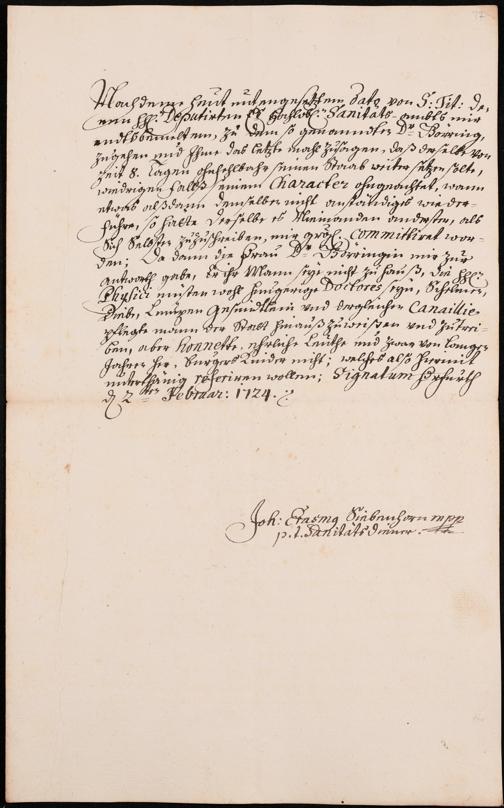 Nachdeme heut untengesetztem dato von S: Tit: de,
nen hh: Deputirten Es Hochlöbl: Sanitäts-ambts mir
endtsbenantem, zu dem so genandten Dr: Börring,
zugehen und Ihme das letzte mahl zusagen, daß derselbe von
Zeit 8. Tagen ohnfehlbahr seinen Staab weiter setzen solte,
widrigen falls seinem Character ohngeachtet, wann
etwas alßdann demselben nicht anständiges wieder-
führe, so hätte derselbe es Niemanden anderster, als
Sich Selbsten zuzuschreiben, mir committiret wor-
den; Da dann die Frau Dr: Börringin mir zur
antworth gabe, Er ihr Mann seye nicht zu hauß, die hh:
Physici müsten wohl hungerige Doctores seyn, Schelmen,
Dieb, Lumpen Gesindtlein und dergleichen Canaillie
pflegte mann der Stadt hinauß zuweißen und zutrei-
ben, aber honnette, ehrliche Leuthe und zwar von langen
Jahren her, Burgers Kinder nicht; welches alß hiermit
unterthänig referiren wollen; Signatum
d. 2ten Februar: 1724.
Joh: Erasmg Siebenhorn mpp
p.t. Sanitäts diener.